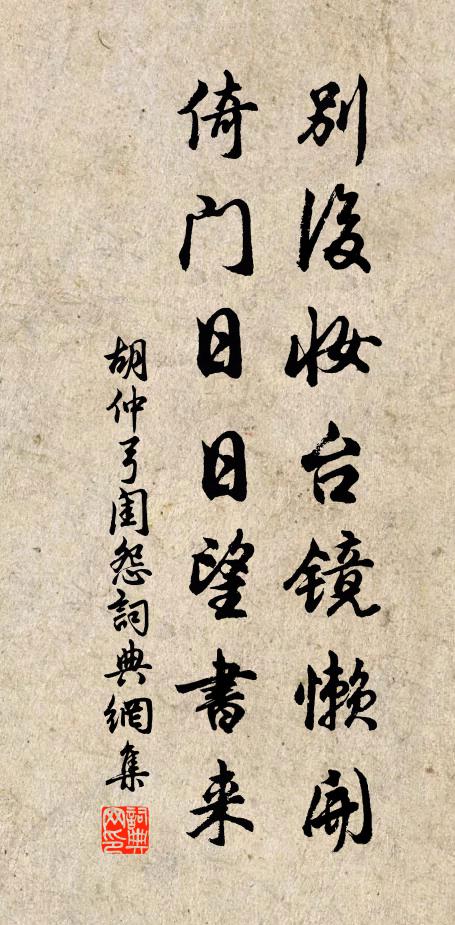 别後妆台镜懒開
倚门日日望書来
胡仲弓闺怨詞典網集
詞典网印